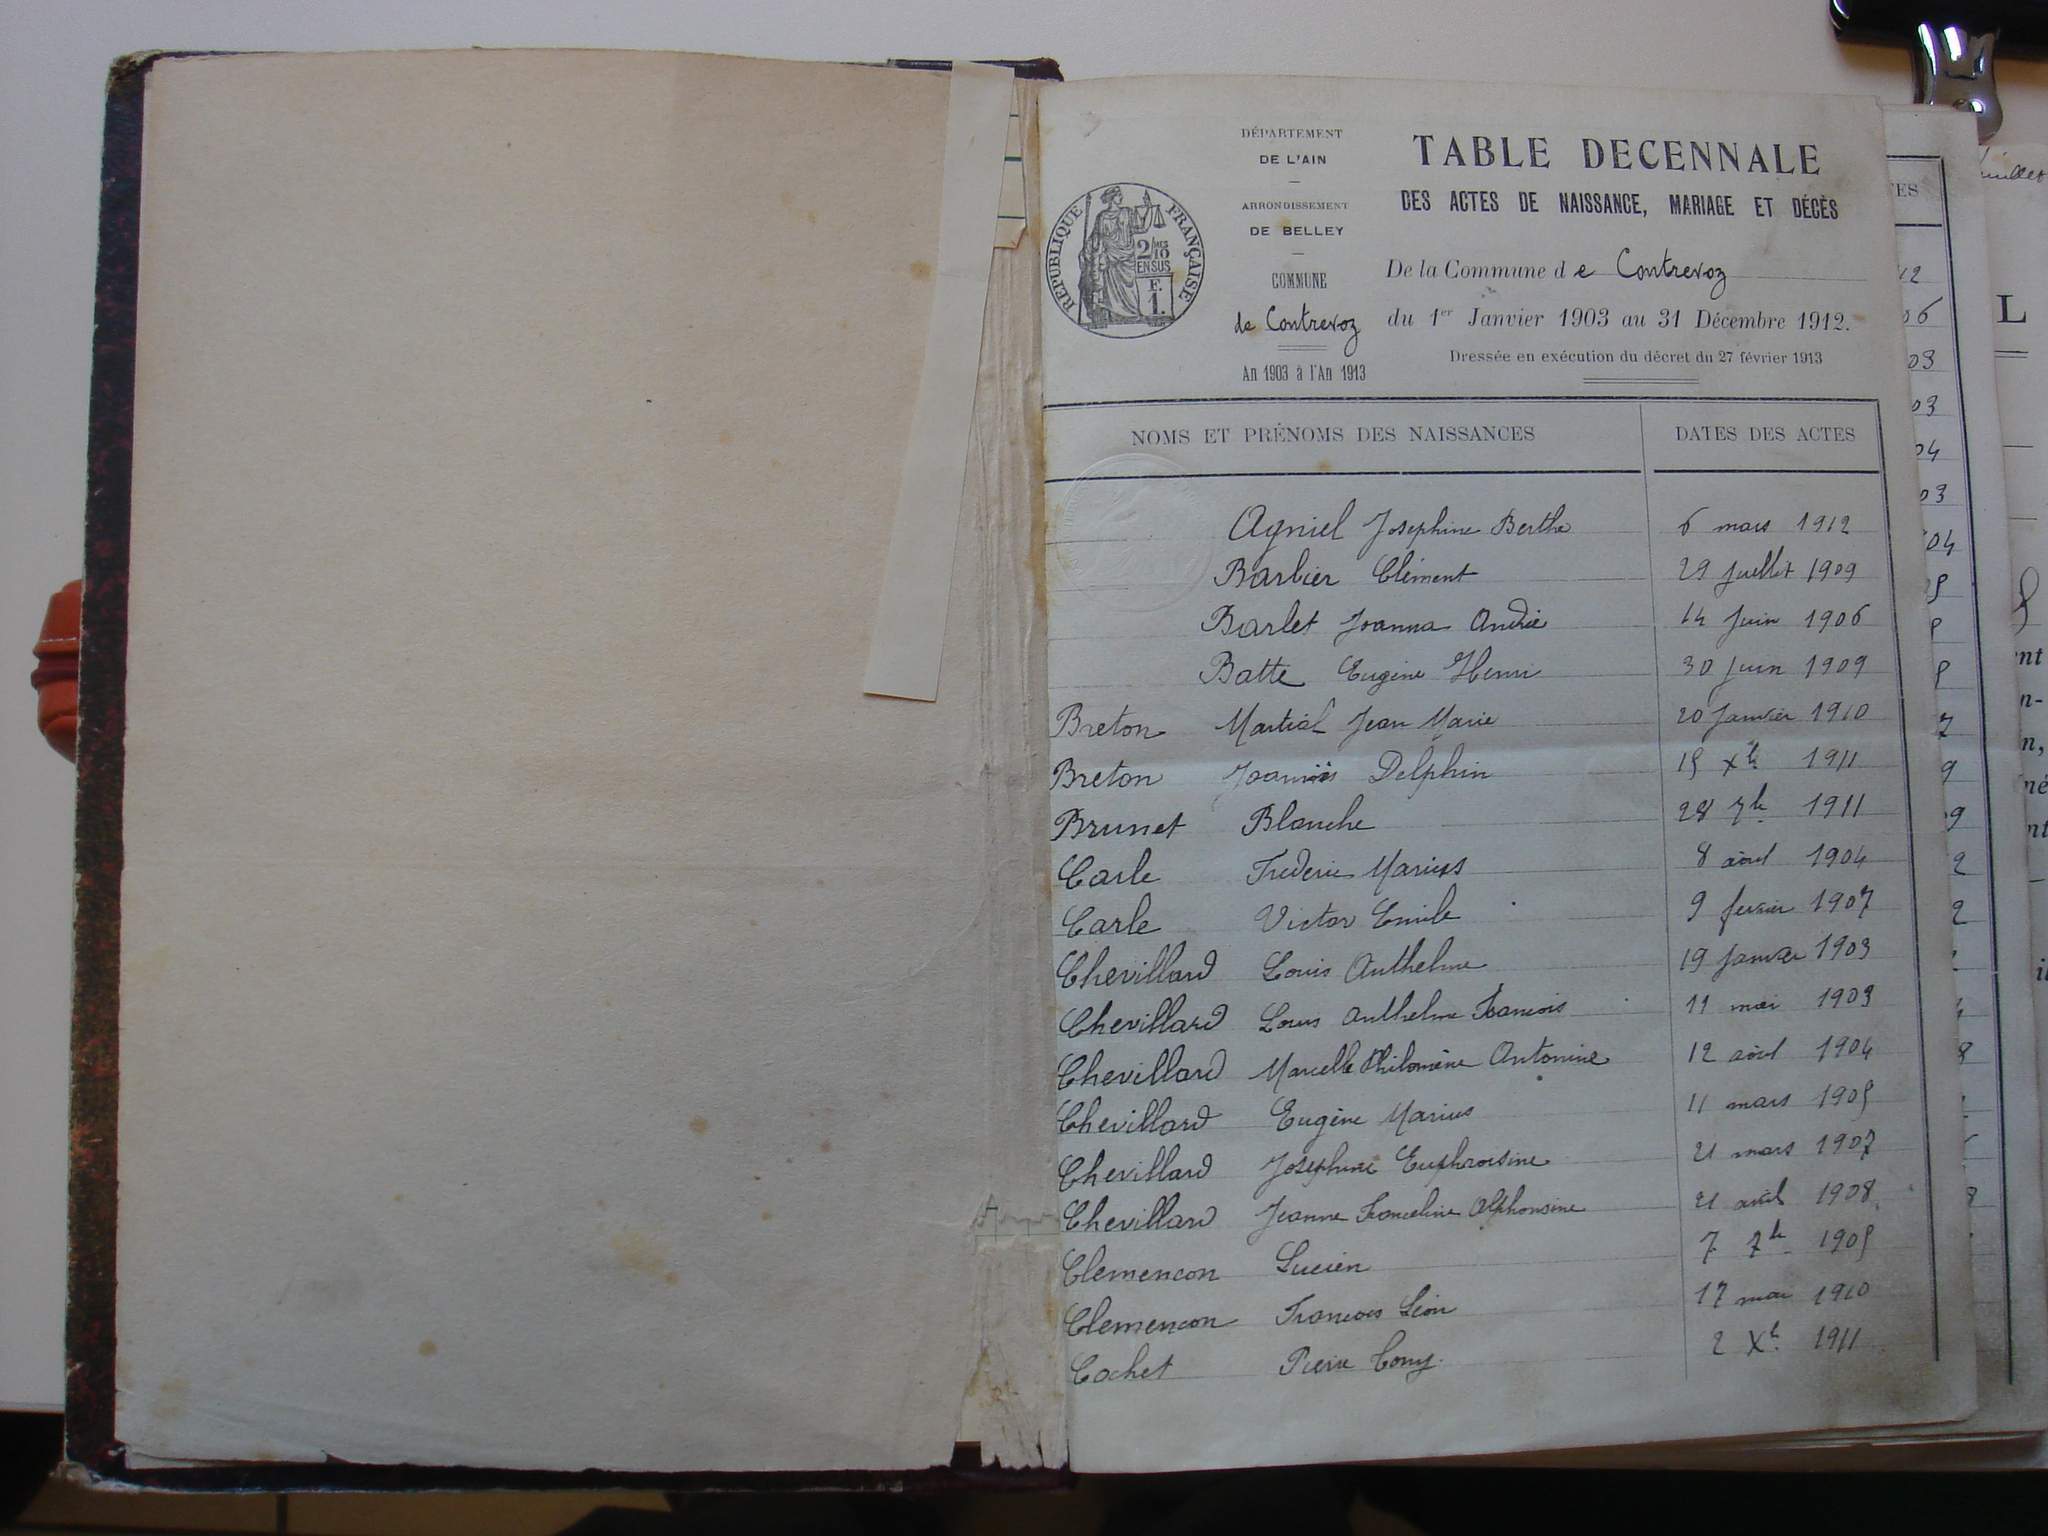 DÉPARTEMENT
DE L'AIN
ARRONDISSEMENT
DE BELLEY
COMMUNE
de Contrevoz
An 1903 à l'An 1913
RÉPUBLIQUE FRANÇAISE
2/10 MES
EN SUS
E.
1.
TABLE DECENNALE
DES ACTES DE NAISSANCE, MARIAGE ET DÉCÈS
De la Commune de Contrevoz
du 1er Janvier 1903 au 31 Décembre 1912.
Dressée en exécution du décret du 27 février 1913
NOMS ET PRÉNOMS DES NAISSANCES DATES DES ACTES
Agniel Josephine Berthe 6 mars 1912
Barbier Clément 29 juillet 1909
Barlet Joanna Andrée 14 Juin 1906
Batte Eugène Henri 30 juin 1909
Breton Martial Jean Marie 20 Janvier 1910
Breton Joannès Delphin 15 Xbre 1911
Brunet Blanche 28 7bre 1911
Carle Frederic Marius 8 août 1904
Carle Victor Emile 9 fevrier 1907
Chevillard Louis Anthelme 19 Janvier 1903
Chevillard Louis Anthelme Francois 11 mai 1903
Chevillard Marcelle Philomène Antonine 12 août 1904
Chevillard Eugène Marius 11 mars 1905
Chevillard Josephine Euphroisine 21 mars 1907
Chevillard Jeanne Franceline Alphonsine 21 avril 1908
Clemencon Lucien 7 7bre 1905
Clemencon Francois Léon 17 mai 1910
Cochet Pierre Tony 2 Xbre 1911